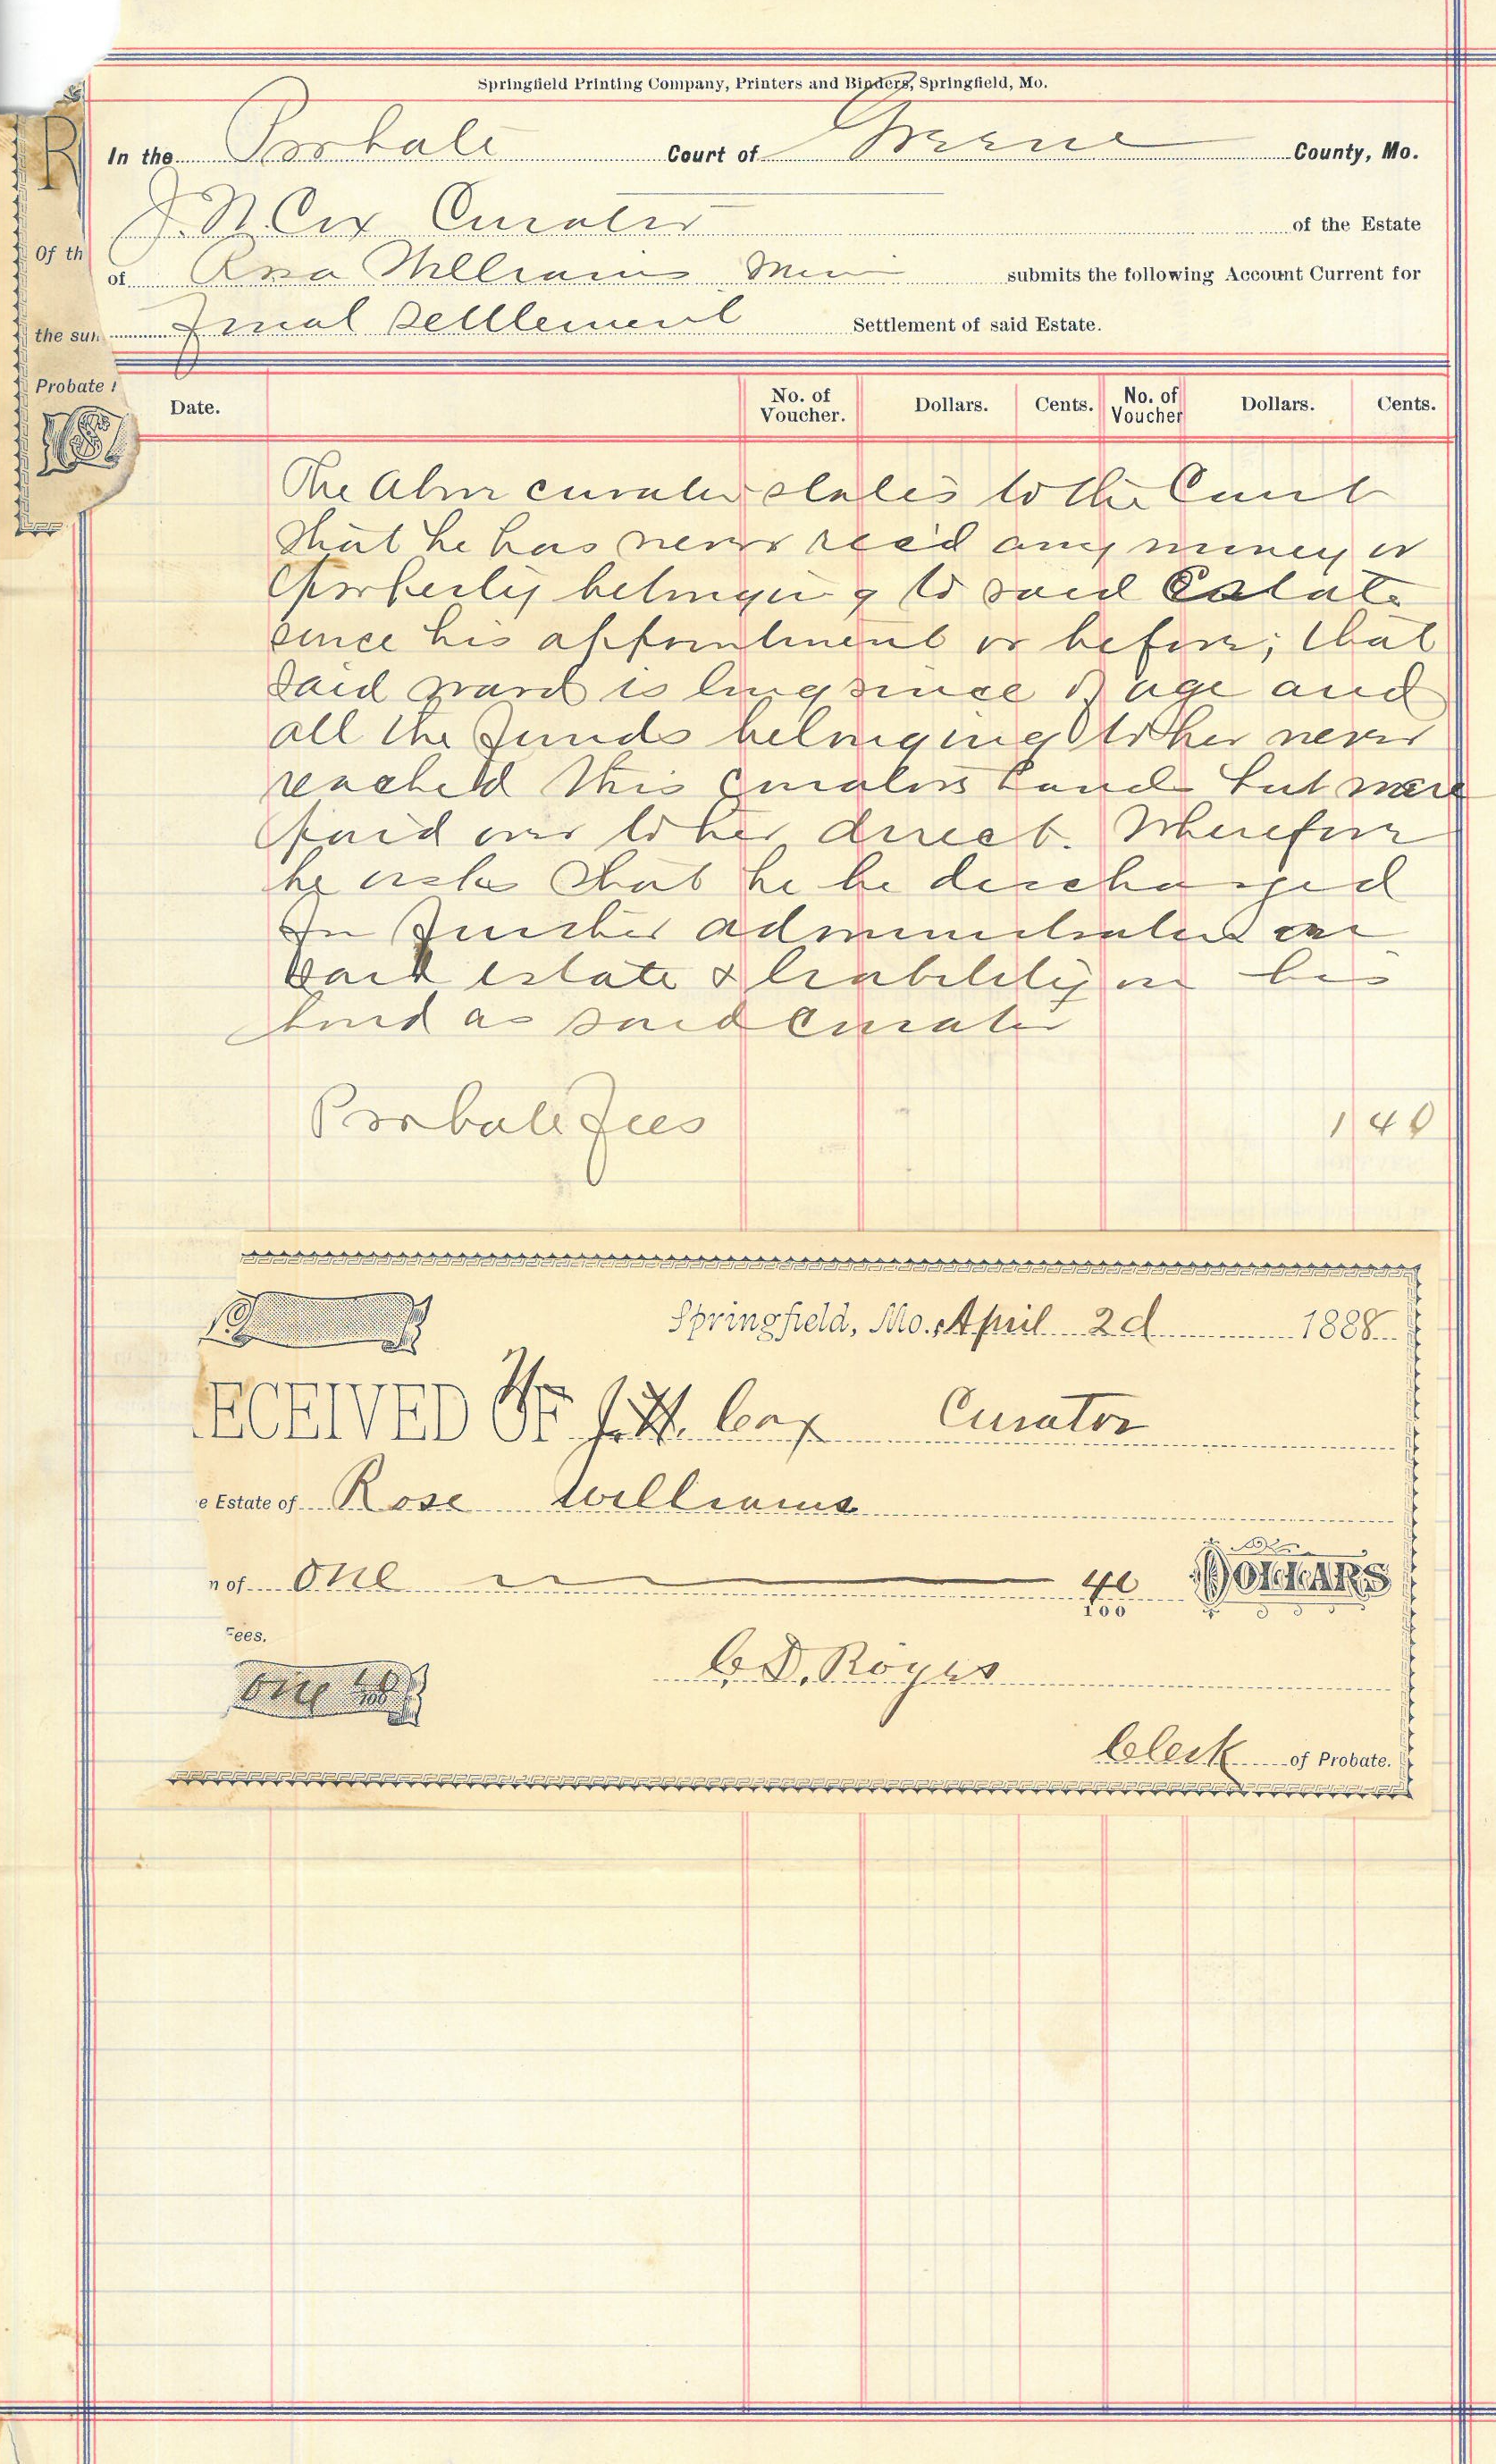 Springfield Printing Company, Printers and Binders, Springfield, Mo.
In the Probate Court of Greene County, Mo.
J. N. Cox Curator of the Estate
of Rosa Williams Minor submits the following Account Current for
Final Settlement Settlement of said Estate.
R
Of th
the sum
Probate
Date. No. of Voucher. Dollars. Cents. No. of Voucher Dollars. Cents.
The above curator states to the Court
that he has never rec'd any money or
property belonging to said Estate
since his appointment or before; that
said ward is long since of age and
all the funds belonging to her never
reached this curators hands but were
paid over to her direct. Wherefore
he asks that he be discharged
from further administration on
said estate & liability on his
bond as said curator
Probate Fees 1 40
Springfield, Mo., April 2d 1888
RECEIVED OF J. N. Cox Curator
e Estate of Rose Williams
m of one 40/100 DOLLARS
Fees.
one 40/100
C. D. Royers
Clerk of Probate.